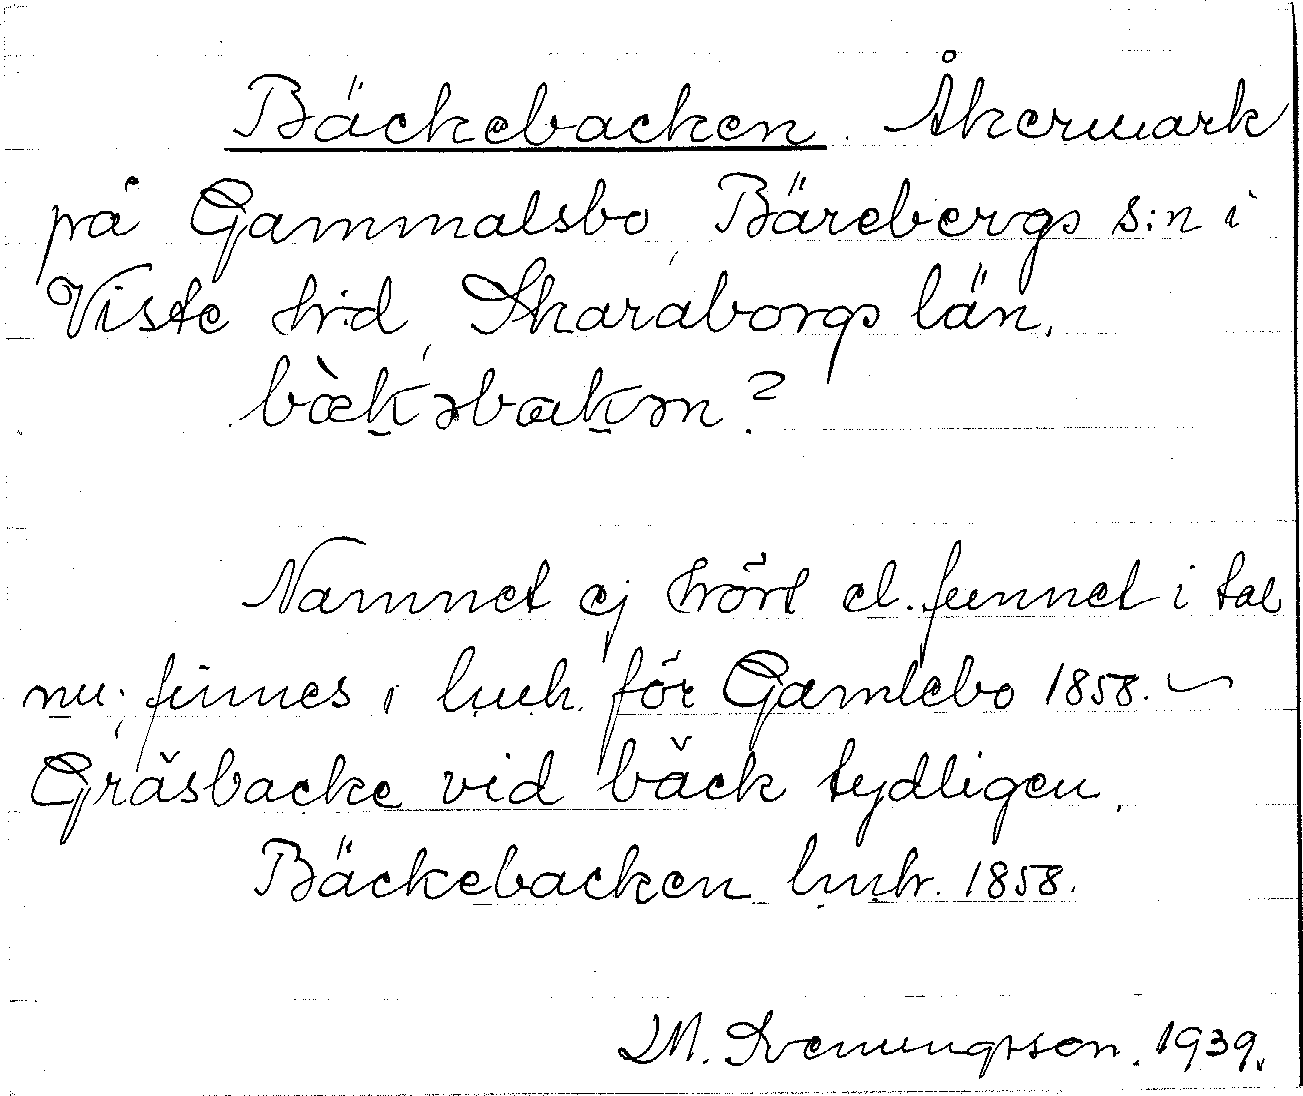 Bäckebacken. Åkermark
på Gammalsbo, Bärebergs s:n i
Viste hd, Skaraborgs län.
bæ̀kəbakən?
Namnet ej hört el. funnet i tal
nu; finnes i lmh. för Gamlebo 1858. ~
Gräsbacke vid bäck tydligen.
Bäckebacken lmh. 1858.
M. Svenungsson. 1939.